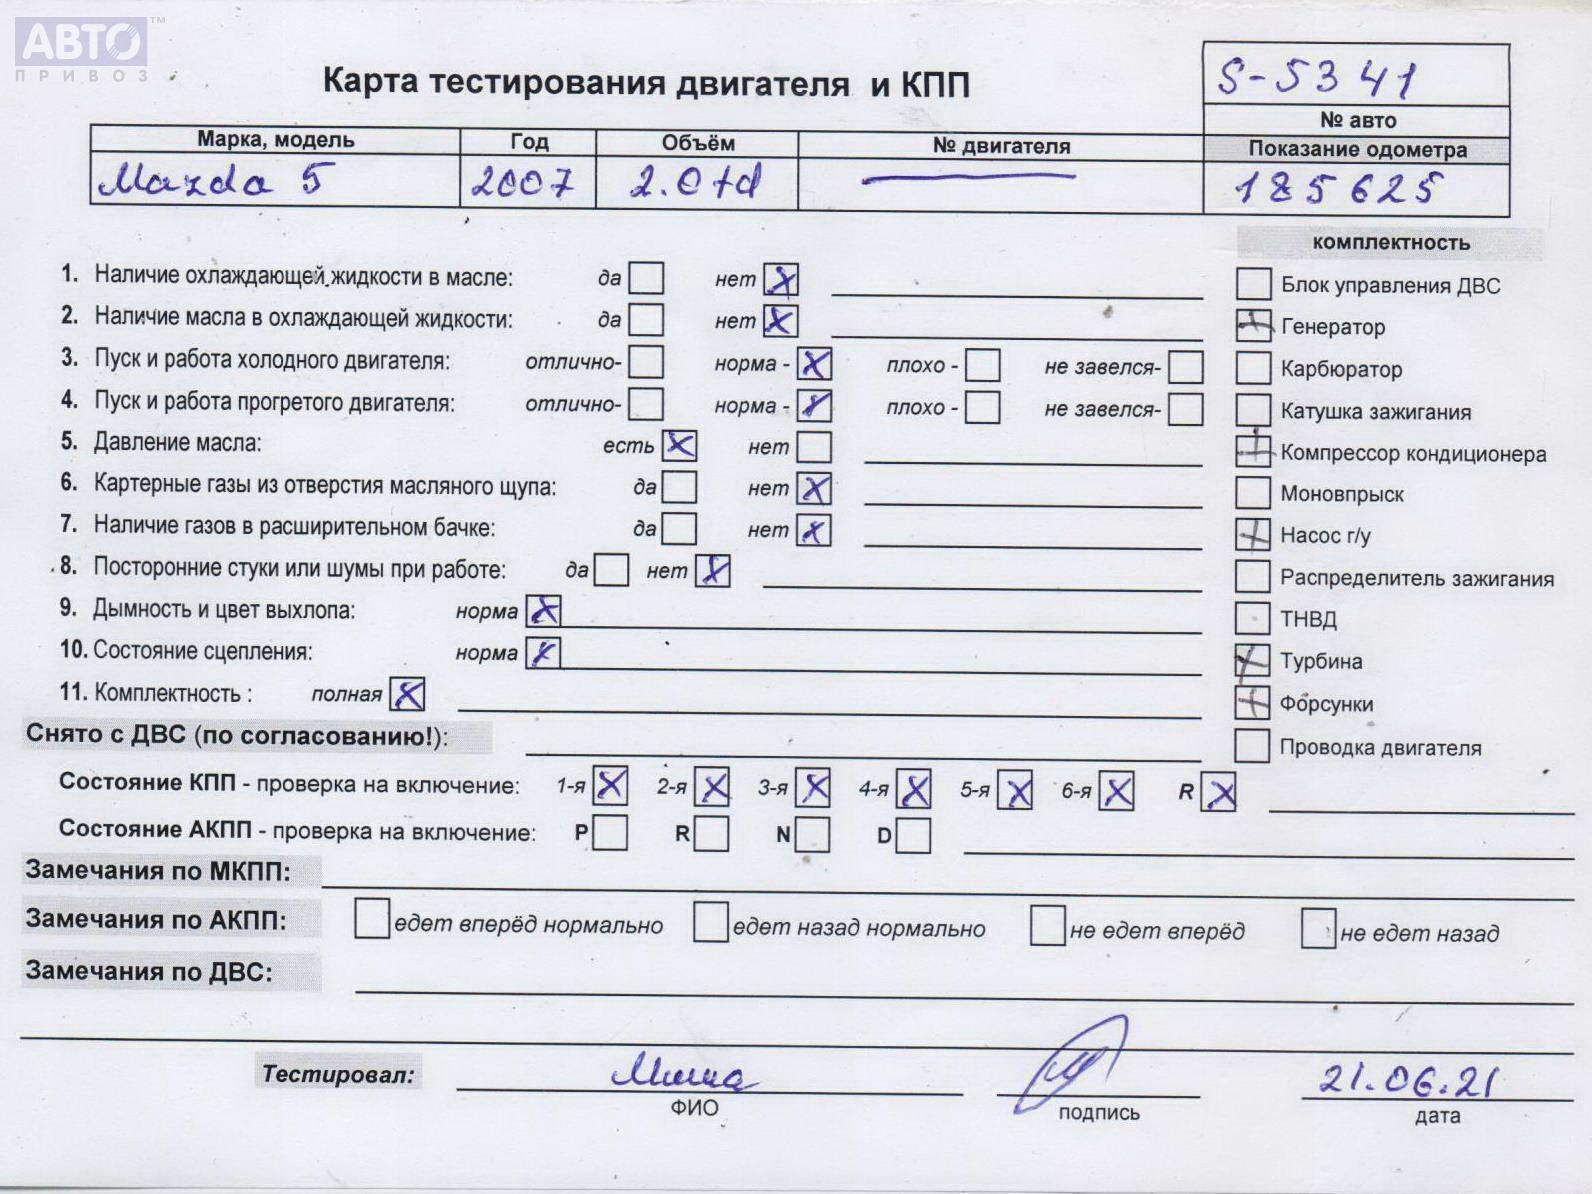 АВТО™
ПРИВОЗ
Карта тестирования двигателя и КПП
S-5341
№ авто
Марка, модель Год Объём № двигателя Показание одометра
Mazda 5 2007 2.0 td 185625
комплектность
1. Наличие охлаждающей жидкости в масле: да нет X
Блок управления ДВС
2. Наличие масла в охлаждающей жидкости: да нет X
Генератор
3. Пуск и работа холодного двигателя: отлично- норма - X плохо - не завелся-
Карбюратор
4. Пуск и работа прогретого двигателя: отлично- норма - X плохо - не завелся-
Катушка зажигания
5. Давление масла: есть X нет
Компрессор кондиционера
6. Картерные газы из отверстия масляного щупа: да нет X
Моновпрыск
7. Наличие газов в расширительном бачке: да нет X
Насос г/у
8. Посторонние стуки или шумы при работе: да нет X
Распределитель зажигания
9. Дымность и цвет выхлопа: норма X
ТНВД
10. Состояние сцепления: норма X
Турбина
11. Комплектность : полная X
Форсунки
Снято с ДВС (по согласованию!):
Проводка двигателя
Состояние КПП - проверка на включение: 1-я X 2-я X 3-я X 4-я X 5-я X 6-я X R X
Состояние АКПП - проверка на включение: P R N D
Замечания по МКПП:
Замечания по АКПП: едет вперёд нормально едет назад нормально не едет вперёд не едет назад
Замечания по ДВС:
Тестировал: Миша 21.06.21
ФИО подпись дата